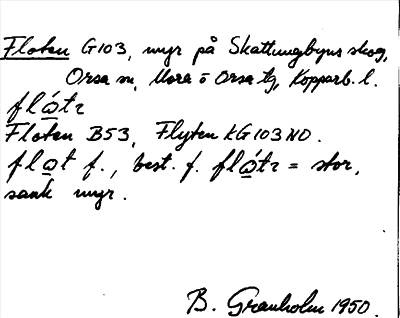 Floten G103, myr på Skattungbyns skog,
Orsa sn, Mora o Orsa tg, Kopparb. l.
flo̲´tz
Floten B53, Flyten KG103NO.
flo̲t f., best. f. flo̲´tz = stor,
sank myr.
B. Granholm 1950.